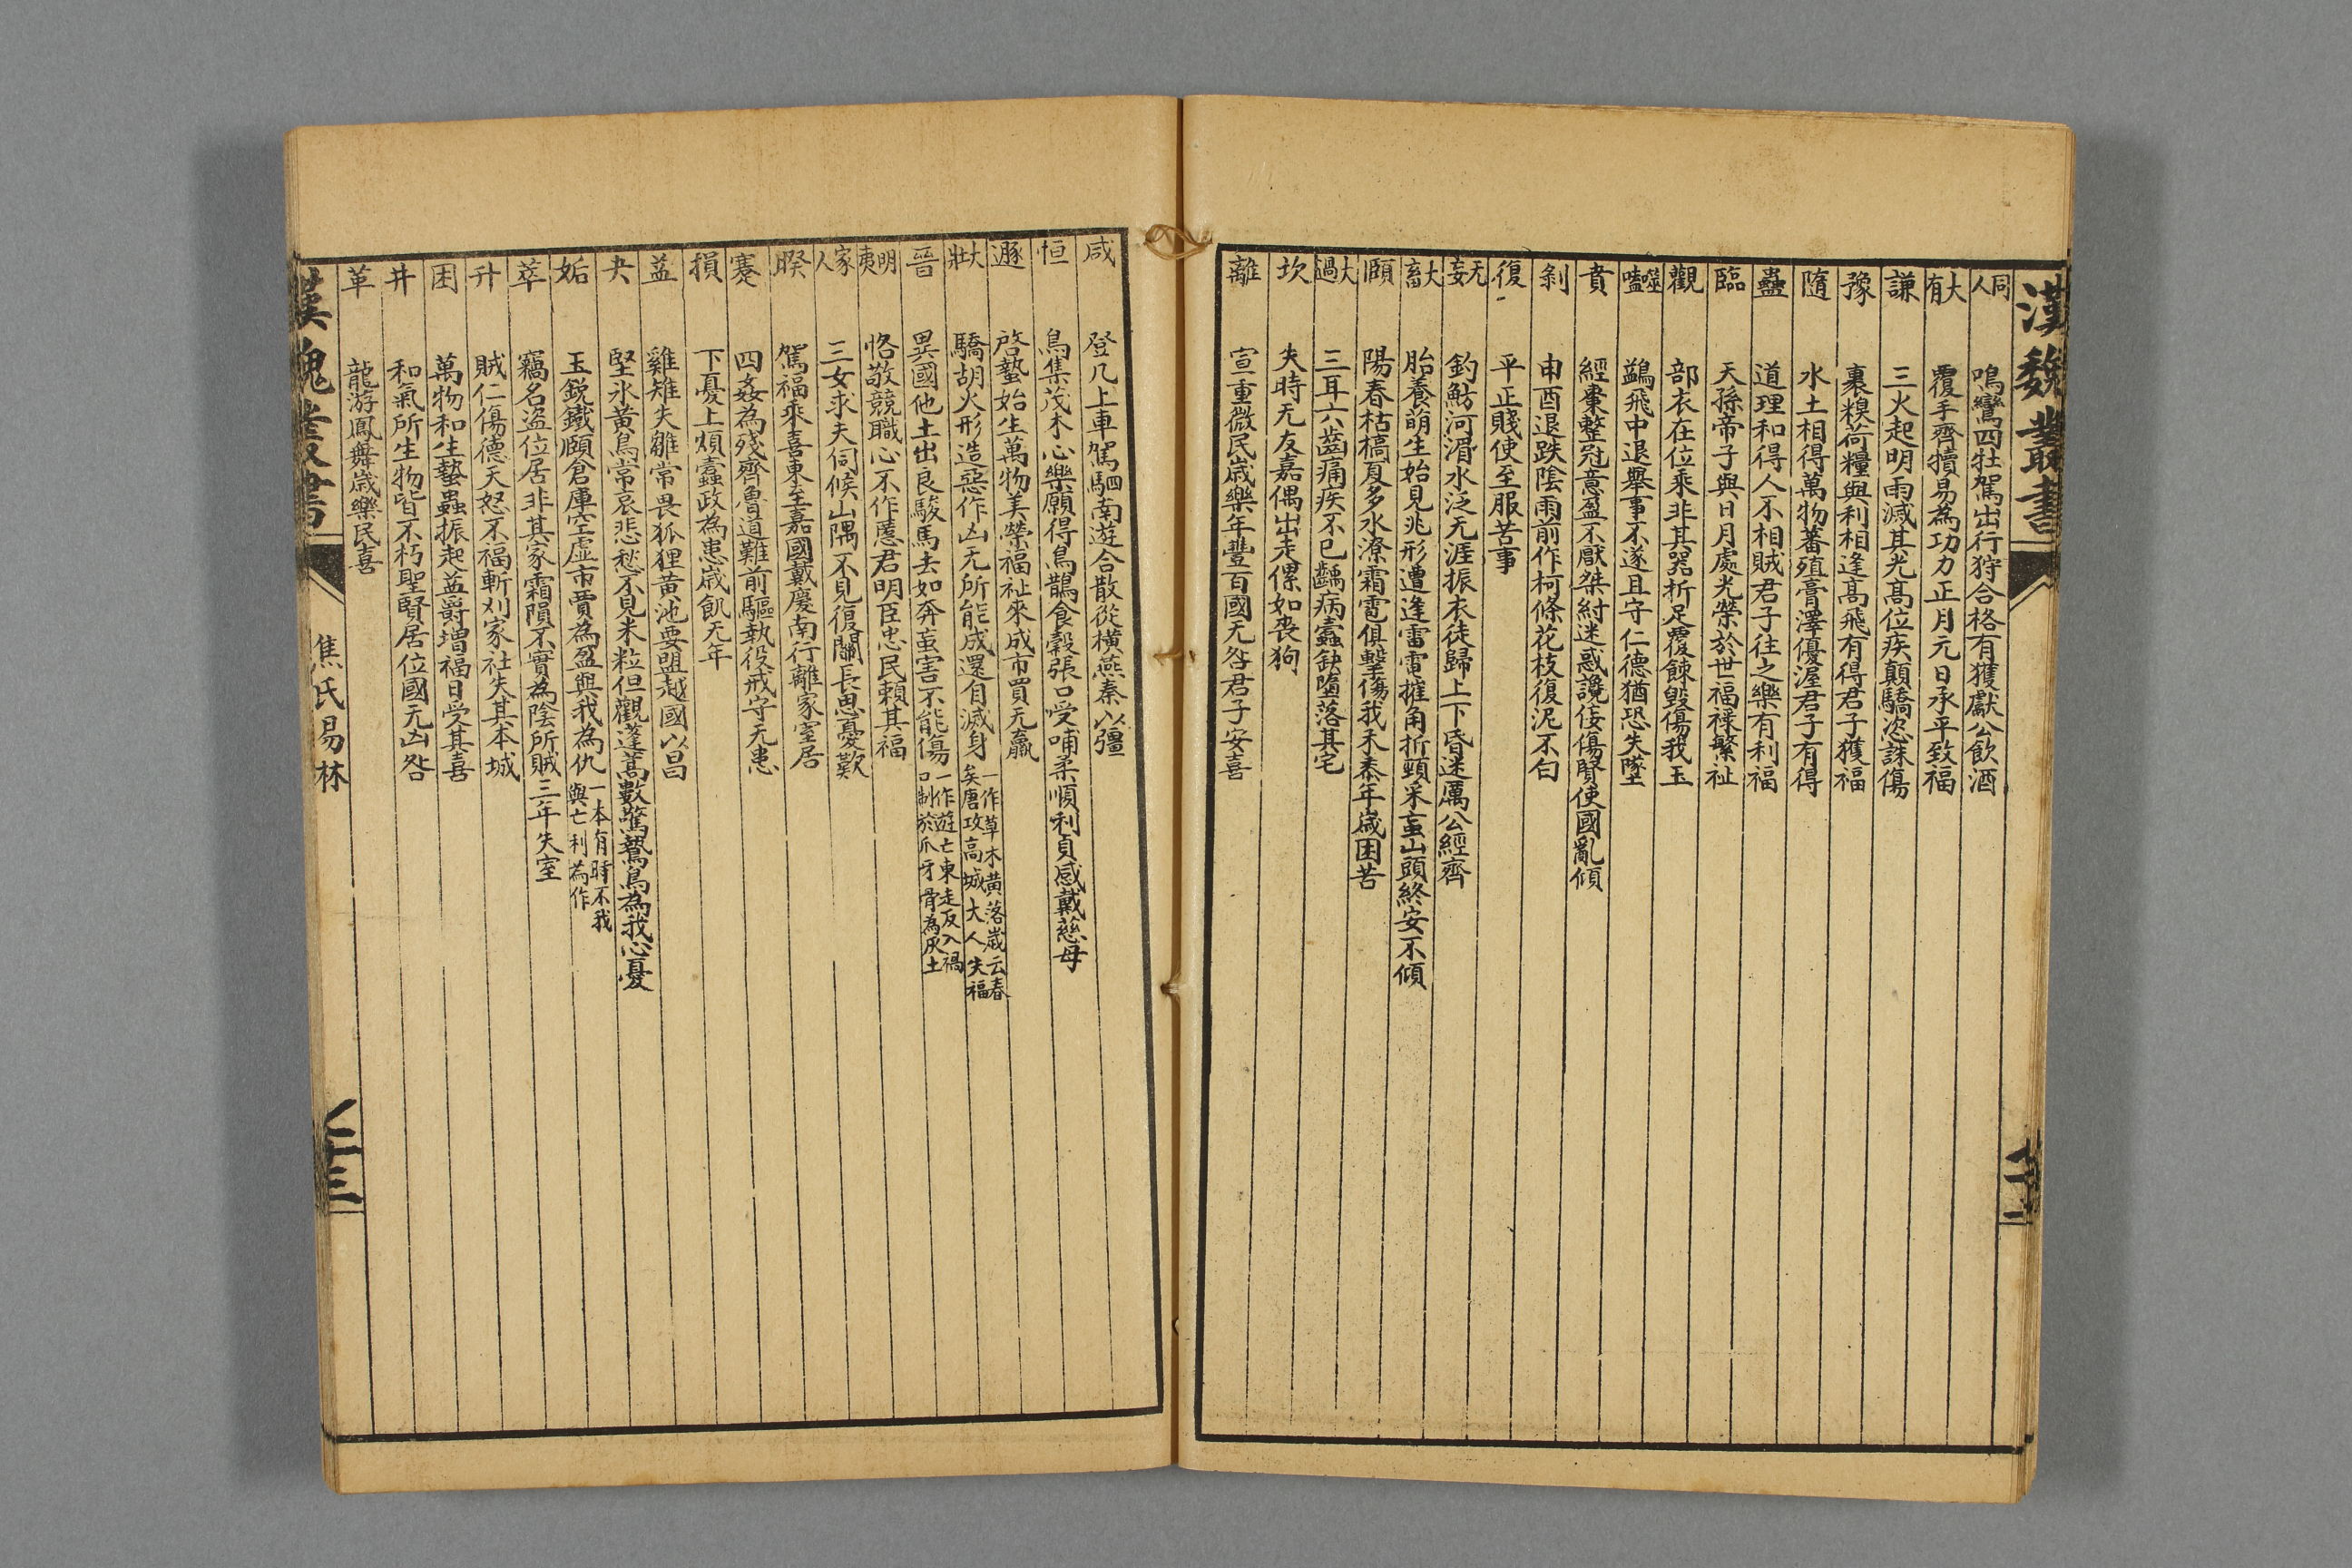 漢魏叢書
同人 鳴鸞四牡駕出行狩合格有獲獻公飲酒
大有 覆手齊犢易為功力正月元日承平致福
謙 三火起明雨滅其光高位疾顛驕恣誅傷
豫 裹糗荷糧與利相逢高飛有得君子獲福
隨 水土相得萬物蕃殖膏澤優渥君子有得
蠱 道理和得人不相賊君子往之樂有利福
臨 天孫帝子與日月處光榮於世福祿繁祉
觀 部衣在位乘非其器折足覆餗毀傷我玉
噬嗑 鷁飛中退舉事不遂且守仁德猶恐失墜
賁 經棗整冠意盈不厭桀紂迷惑讒佞傷賢使國亂傾
剝 申酉退跌陰雨前作柯條花枝復泥不白
復 平正賤使至服苦事
无妄 釣魴河湄水泛无涯振衣徒歸上下昏迷厲公經齊
大畜 胎養萌生始見兆形遭逢雷電摧角折頸采蝱山頭終安不傾
頤 陽春枯槁夏多水潦霜雹俱擊傷我禾黍年歲困苦
大過 三耳六齒痛疾不已齲病蠹缺墮落其宅
坎 失時无友嘉偶出走傫如喪狗
離 宣重微民歲樂年豐百國无咎君子安喜
咸 登几上車駕駟南遊合散從橫燕秦以彊
恒 鳥集茂木心樂願得鳥鵲食穀張口受哺柔順利貞感戴慈母
遯 啓蟄始生萬物美榮福祉來成市買无贏
大壯 驕胡火形造惡作凶无所能成還自滅身 一作草木黃落歲云春矣唐攻高城大人失福
晉 異國他土出良駿馬去如奔蝱害不能傷 一作遊亡東走反入禍口制於爪牙骨為灰土
明夷 恪敬競職心不作慝君明臣忠民賴其福
家人 三女求夫伺候山隅不見復關長思憂歎
睽 駕福乘喜東至嘉國戴慶南行離家室居
蹇 四姦為殘齊魯道難前驅執役戒守无患
損 下憂上煩蠹政為患歲飢无年
益 雞雉失雛常畏狐狸黃池要盟越國以昌
夬 堅冰黃鳥常哀悲愁不見米粒但觀蓬蒿數驚鷙鳥為我心憂
姤 玉銳鐵頤倉庫空虛市賈為盈與我為仇 一本有時不我與亡利為作
萃 竊名盜位居非其家霜隕不實為陰所賊三年失室
升 賊仁傷德天怒不福斬刈家社失其本城
困 萬物和生蟄蟲振起益爵增福日受其喜
井 和氣所生物皆不朽聖賢居位國无凶咎
革 龍游鳳舞歲樂民喜
漢魏叢書 焦氏易林 二十三